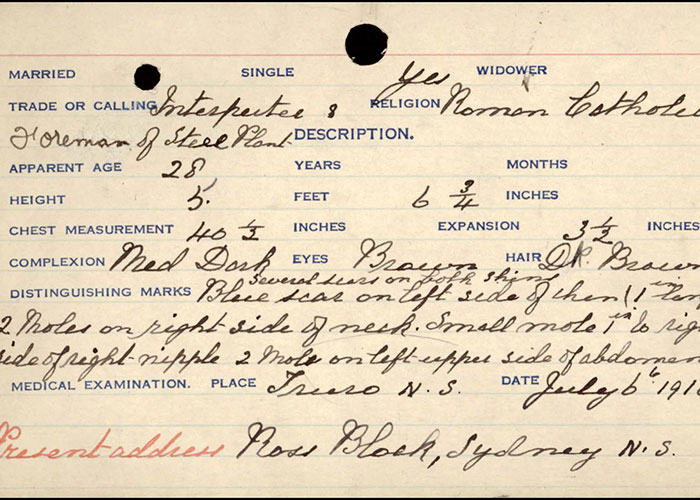 MARRIED SINGLE Yes WIDOWER
TRADE OR CALLING Interpreter & RELIGION Roman Catholic
Foreman of Steel Plant DESCRIPTION.
APPARENT AGE 28 YEARS MONTHS
HEIGHT 5 FEET 6 3/4 INCHES
CHEST MEASUREMENT 40 1/2 INCHES EXPANSION 3 1/2 INCHES
COMPLEXION Med Dark EYES Brown HAIR Dk. Brown
Several scars on both shins
DISTINGUISHING MARKS Blue scar on left side of chin (1 in
2 Moles on right side of neck. Small mole 1 in to
side of right nipple 2 Mols on left upper side of abdomen
MEDICAL EXAMINATION. PLACE Truro N.S. DATE July 6 191
Present address Ross Block, Sydney N.S.